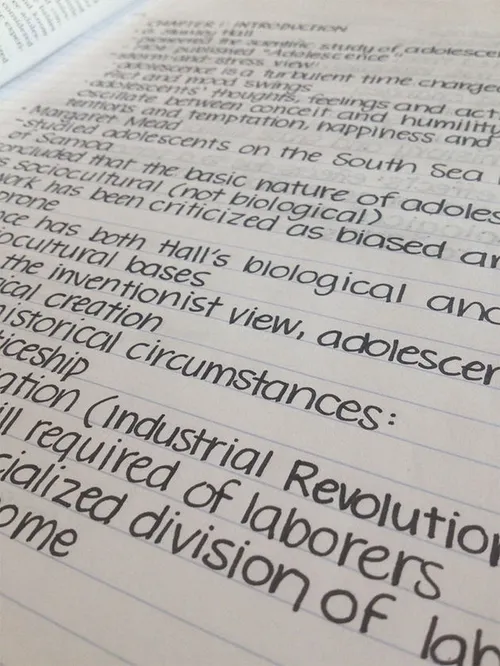 CHAPTER 1: INTRODUCTION
• G. Stanley Hall
pioneered the scientific study of adolescen
1904 published "Adolescence"
• storm-and-stress view:
adolescence is a turbulent time charged
flict and mood swings
• adolescents' thoughts, feelings and act
oscillate between conceit and humility
tentions and temptation, happiness and
• Margaret Mead
-studied adolescents on the South Sea
of Samoa
concluded that the basic nature of adoles
s sociocultural (not biological)
work has been criticized as biased an
prone
nce has both Hall's biological and
iocultural bases
the inventionist view, adolescen
ical creation
historical circumstances:
ticeship
ation (Industrial Revolution
ill required of laborers
cialized division of lab
ome